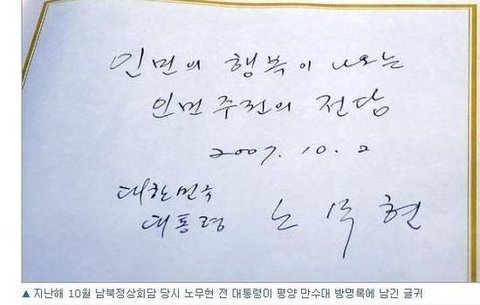 인민의 행복이 나오는
인민 주권의 전당
2007. 10. 2
대한민국
대통령 노무현
▲ 지난해 10월 남북정상회담 당시 노무현 전 대통령이 평양 만수대 방명록에 남긴 글귀